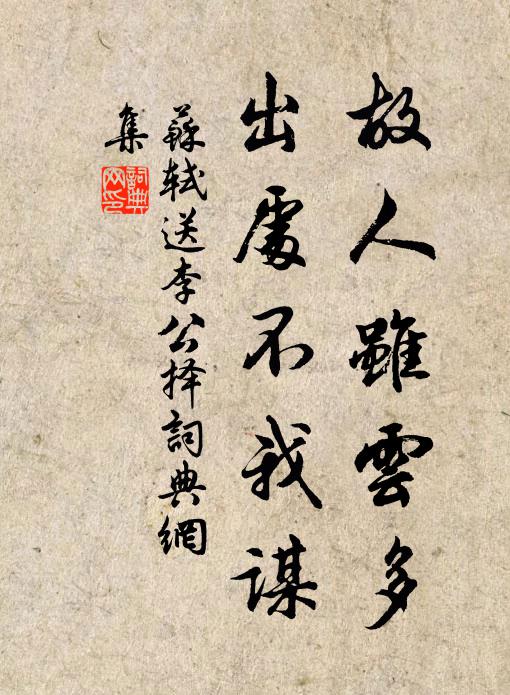 故人雖雲多
出處不我謀
蘇轼送李公择詞典網
集
詞典
网印